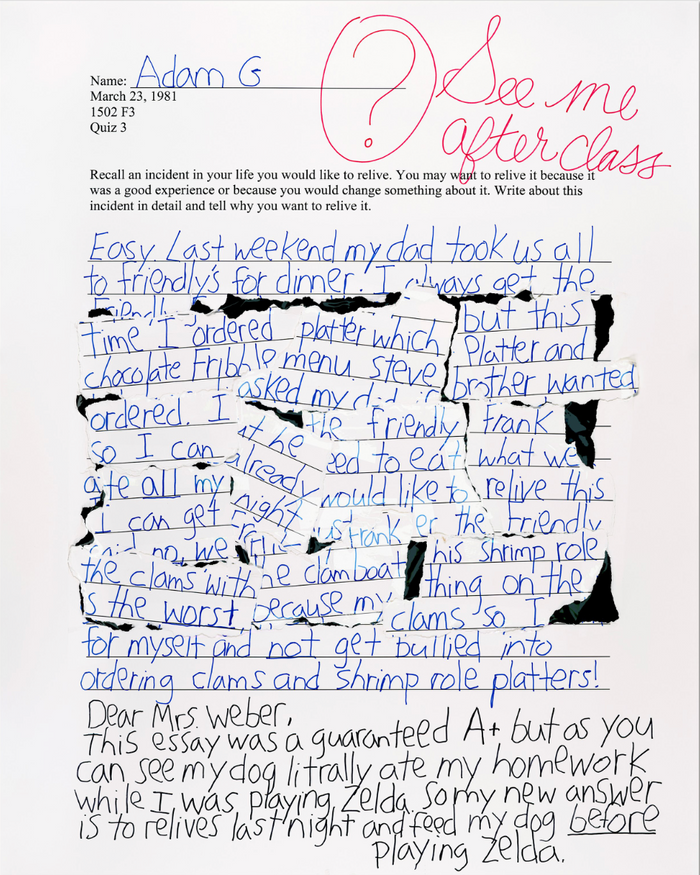 Name: Adam G
March 23, 1981
1502 F3
Quiz 3
?
See me
after class
Recall an incident in your life you would like to relive. You may want to relive it because it
was a good experience or because you would change something about it. Write about this
incident in detail and tell why you want to relive it.
Easy. Last weekend my dad took us all
to friendly's for dinner. I always get the
Friendly
time I ordered platter which but this
chocolate Fribble menu Steve Platter and
asked my dad brother wanted
ordered. I the friendly Frank
so I can at he eed to eat what we
ate all my already would like to relive this
I can get night us Frank er the Friendly
no, we his shrimp role
the clams with he clamboat thing on the
s the worst because my clams so I
for myself and not get bullied into
ordering clams and shrimp role platters!
Dear Mrs. Weber,
This essay was a guaranteed A+ but as you
can see my dog litrally ate my homework
while I was playing Zelda. So my new answer
is to relives last night and feed my dog before
playing Zelda.